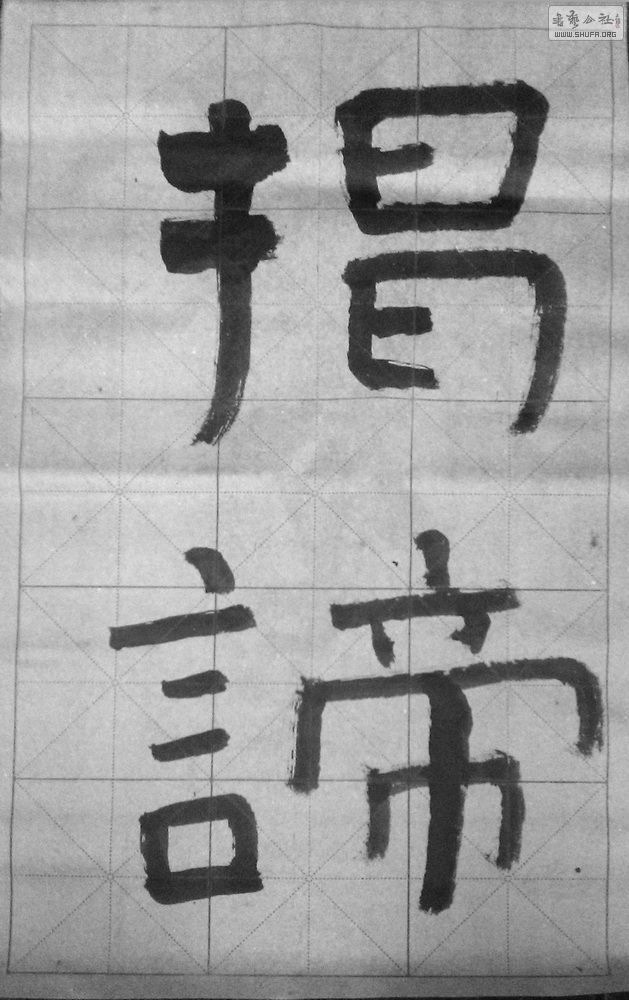 揭
諦
書艺公社
WWW.SHUFA.ORG